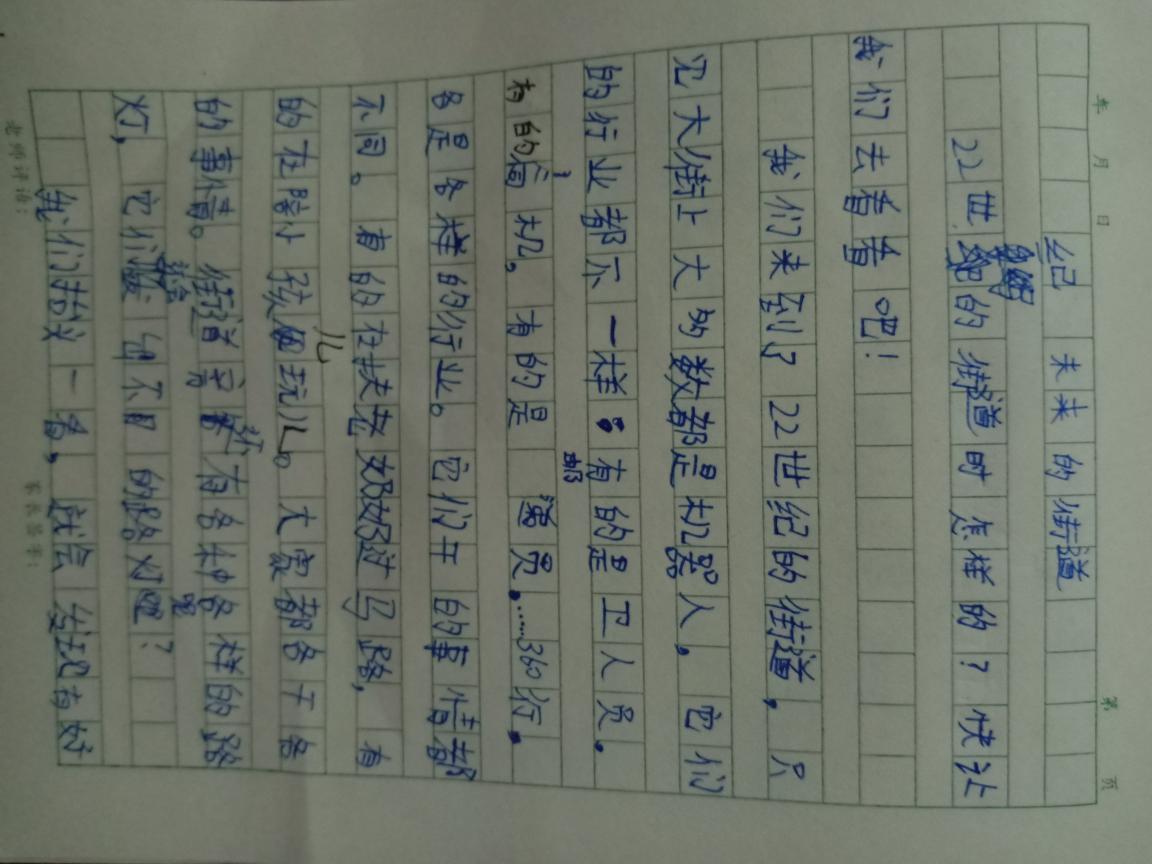 年 月 日 第 页
未来的街道
纪
22世的街道时怎样的？快让
我们去看看吧！
我们来到了22世纪的街道，只
见大街上大多数都是机器人，它们
的行业都不一样：有的是卫人员。
有的司机，有的是 员……360行。
各是各样的行业。它们干的事情都
不同。有的在扶老奶奶过马路，有
的在陪小孩儿玩儿。大家都各干各
的事情。街道有各种各样的路
灯，它们不同的路灯呢？
我们 一看，就会发现有好
老师评语：
家长签字：